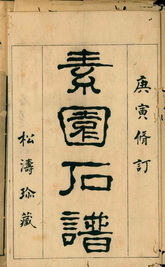 庚寅脩訂
素園石譜
松濤珍藏